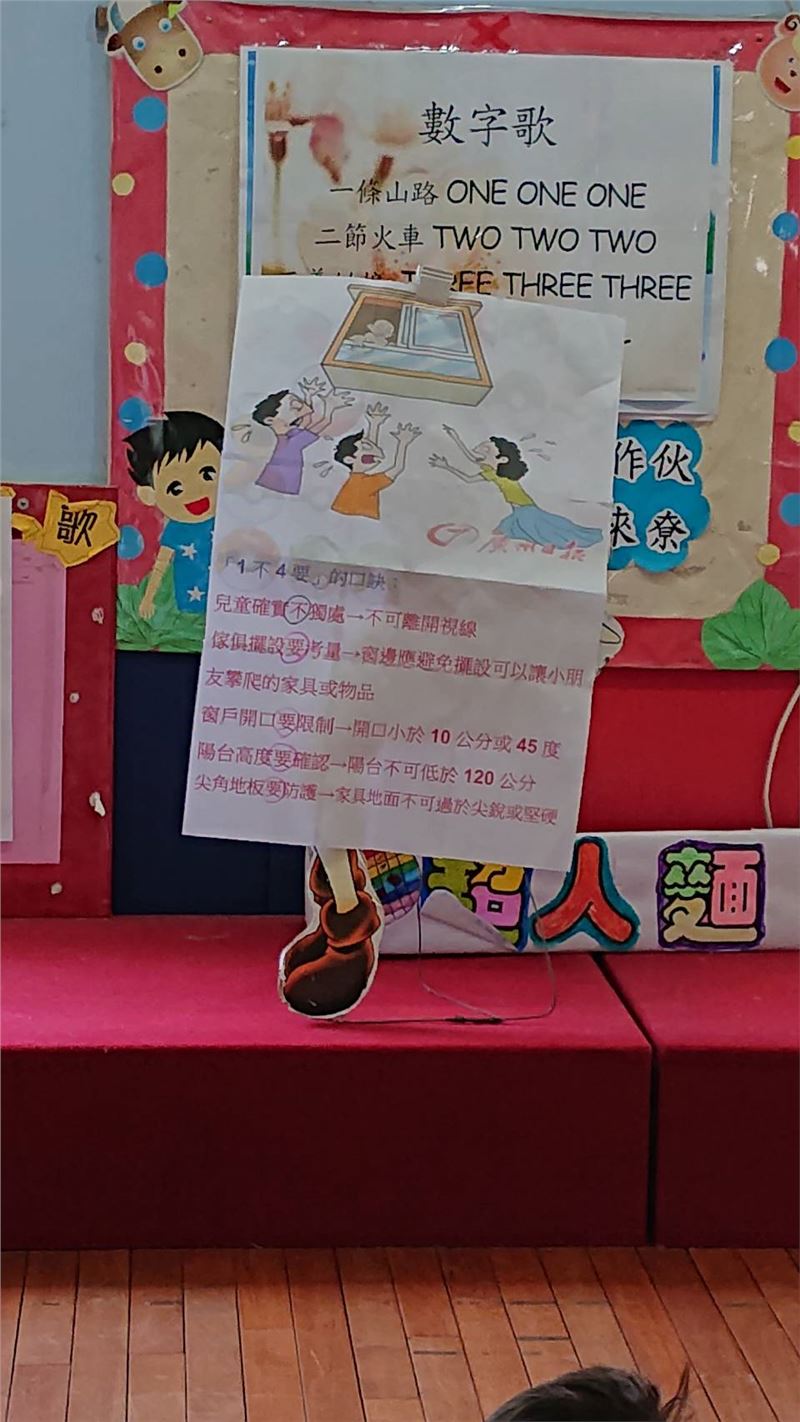 數字歌
一條山路 ONE ONE ONE
二節火車 TWO TWO TWO
THREE THREE THREE
作伙
來寮
歌
廣州日报
「1 不 4 要」的口訣：
兒童確實不獨處→不可離開視線
傢俱擺設要考量→窗邊應避免擺設可以讓小朋
友攀爬的家具或物品
窗戶開口要限制→開口小於 10 公分或 45 度
陽台高度要確認→陽台不可低於 120 公分
尖角地板要防護→家具地面不可過於尖銳或堅硬
超人麵